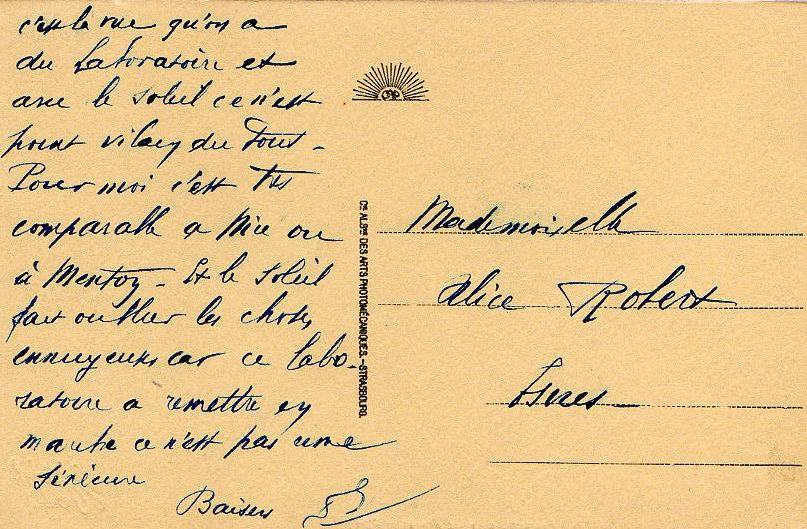 c'est la vue qu'on a
du Laboratoire et
avec le soleil ce n'est
point vilain du Tout -
Pour moi c'est Très
comparable à Nice ou
à Menton - Et le Soleil
fait oublier les choses
ennuyeuses car ce labo-
ratoire a remettre en
marche ce n'est pas une
Sinécure
Baisers
Cie ALSne DES ARTS PHOTOMÉCANIQUES. - STRASBOURG.
Mademoiselle
Alice Robert